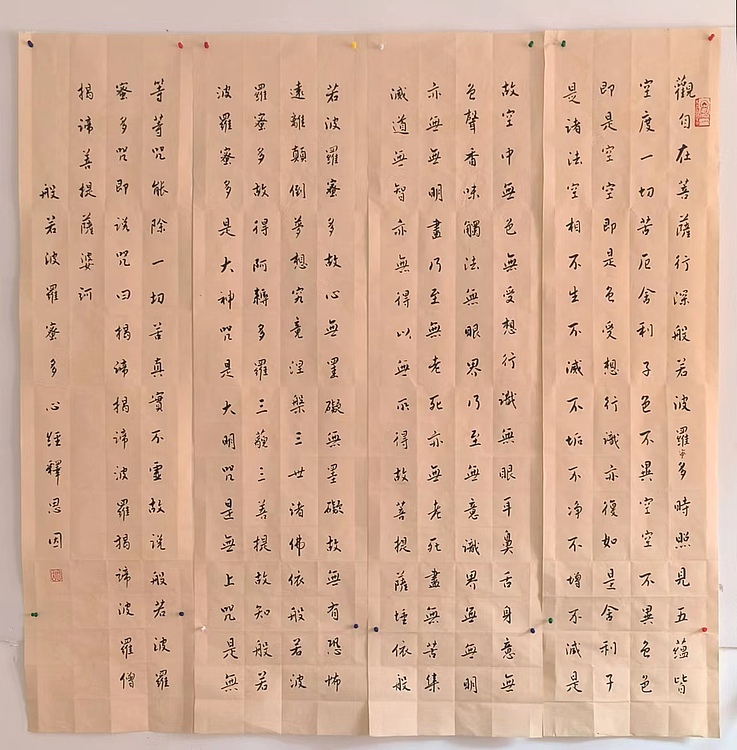 觀自在菩薩行深般若波羅多時照見五蘊皆
空度一切苦厄舍利子色不異空空不異色色
即是空空即是色受想行識亦復如是舍利子
是諸法空相不生不滅不垢不净不增不減是
故空中無色無受想行識無眼耳鼻舌身意無
色聲香味觸法無眼界乃至無意識界無無明
亦無無明盡乃至無老死亦無老死盡無苦集
滅道無智亦無得以無所得故菩提薩埵依般
若波羅蜜多故心無罣礙無罣礙故無有恐怖
遠離顛倒夢想究竟涅槃三世諸佛依般若波
羅蜜多故得阿耨多羅三藐三菩提故知般若
波羅蜜多是大神咒是大明咒是無上咒是無
等等咒能除一切苦真實不虛故說般若波羅
蜜多咒即說咒曰揭諦揭諦波羅揭諦波羅僧
揭諦菩提薩婆訶
般若波羅蜜多心經釋恩因